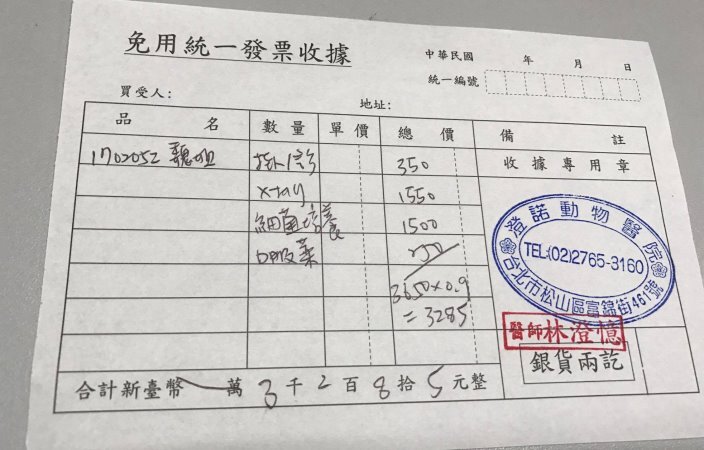 免用統一發票收據
中華民國 年 月 日
統一編號
買受人:
地址:
品 名 數量 單價 總價 備 註
1702052 魏姐 掛/診 350
收據專用章
x-ray 1550
細菌培養 1500
口服藥 250
3650×0.9
=3285
澄諾動物醫院
TEL:(02)2765-3160
台北市松山區富錦街461號
醫師林澄憶
銀貨兩訖
合計新臺幣 萬 3 千 2 百 8 拾 5 元整